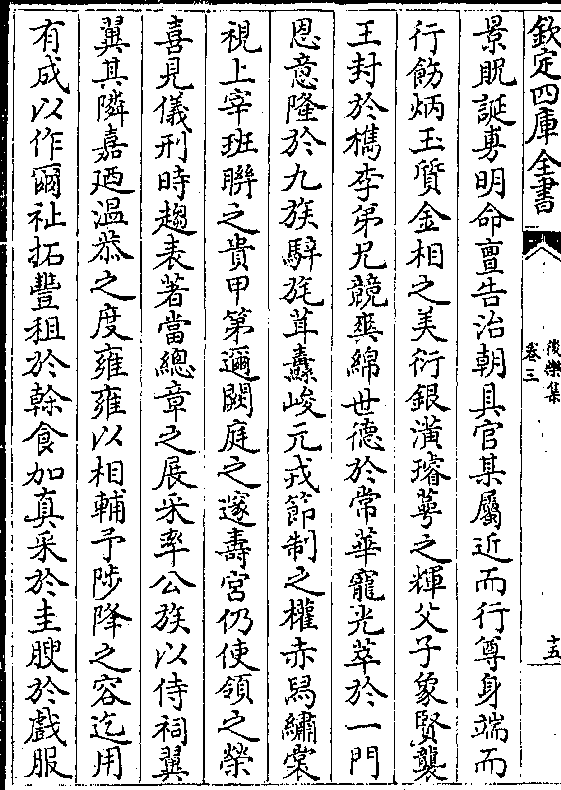 欽定四庫全書
後樂集
卷三
十五
景貺誕旉明命亶告治朝具官某屬近而行尊身端而
行飭炳玉質金相之美衍銀潢璿萼之輝父子象賢襲
王封於檇李弟兄競爽綿世德於常華寵光萃於一門
恩意隆於九族騂旄茸纛峻元戎節制之權赤舄繡裳
視上宰班聯之貴甲第邇闕庭之邃壽宮仍使領之榮
喜見儀刑時趨表著當總章之展采率公族以侍祠翼
翼其隣嘉廼溫恭之度雍雍以相輔予陟降之容迄用
有成以作爾祉拓豐租於榦食加真采於圭腴於戲服